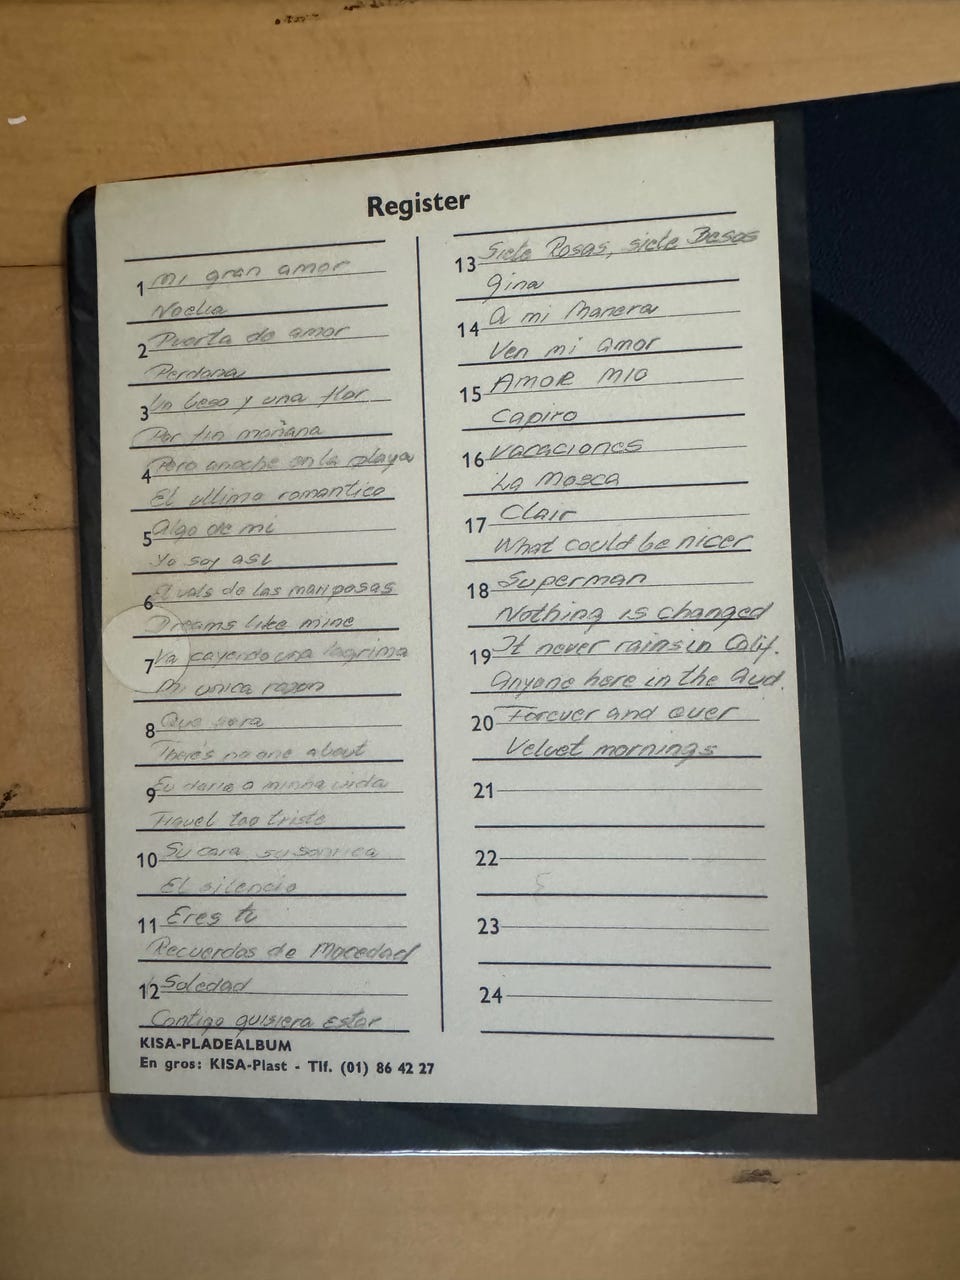 Register
1 Mi gran amor
Noelia
2 Puerta de amor
Perdona
3 Un beso y una flor
Por fin mañana
4 Pero anoche en la playa
El ultimo romantico
5 Algo de mi
Yo soy asi
6 El vals de las mariposas
Dreams like mine
7 Va cayendo una lagrima
Mi unica razon
8 Que sera
There's no one about
9 Eu daria a minha vida
Fiquei tao triste
10 Su cara su sonrisa
El silencio
11 Eres tu
Recuerdos de Mocedad
12 Soledad
Contigo quisiera Estar
13 Siete Rosas, siete Besos
Gina
14 A mi Manera
Ven mi amor
15 AMOR MIO
Capiro
16 Vacaciones
La Mosca
17 Clair
What could be nicer
18 Superman
Nothing is changed
19 It never rains in Calif.
Anyone here in the Aud.
20 Forever and ever
Velvet mornings
21
22
23
24
KISA-PLADEALBUM
En gros: KISA-Plast - Tlf. (01) 86 42 27